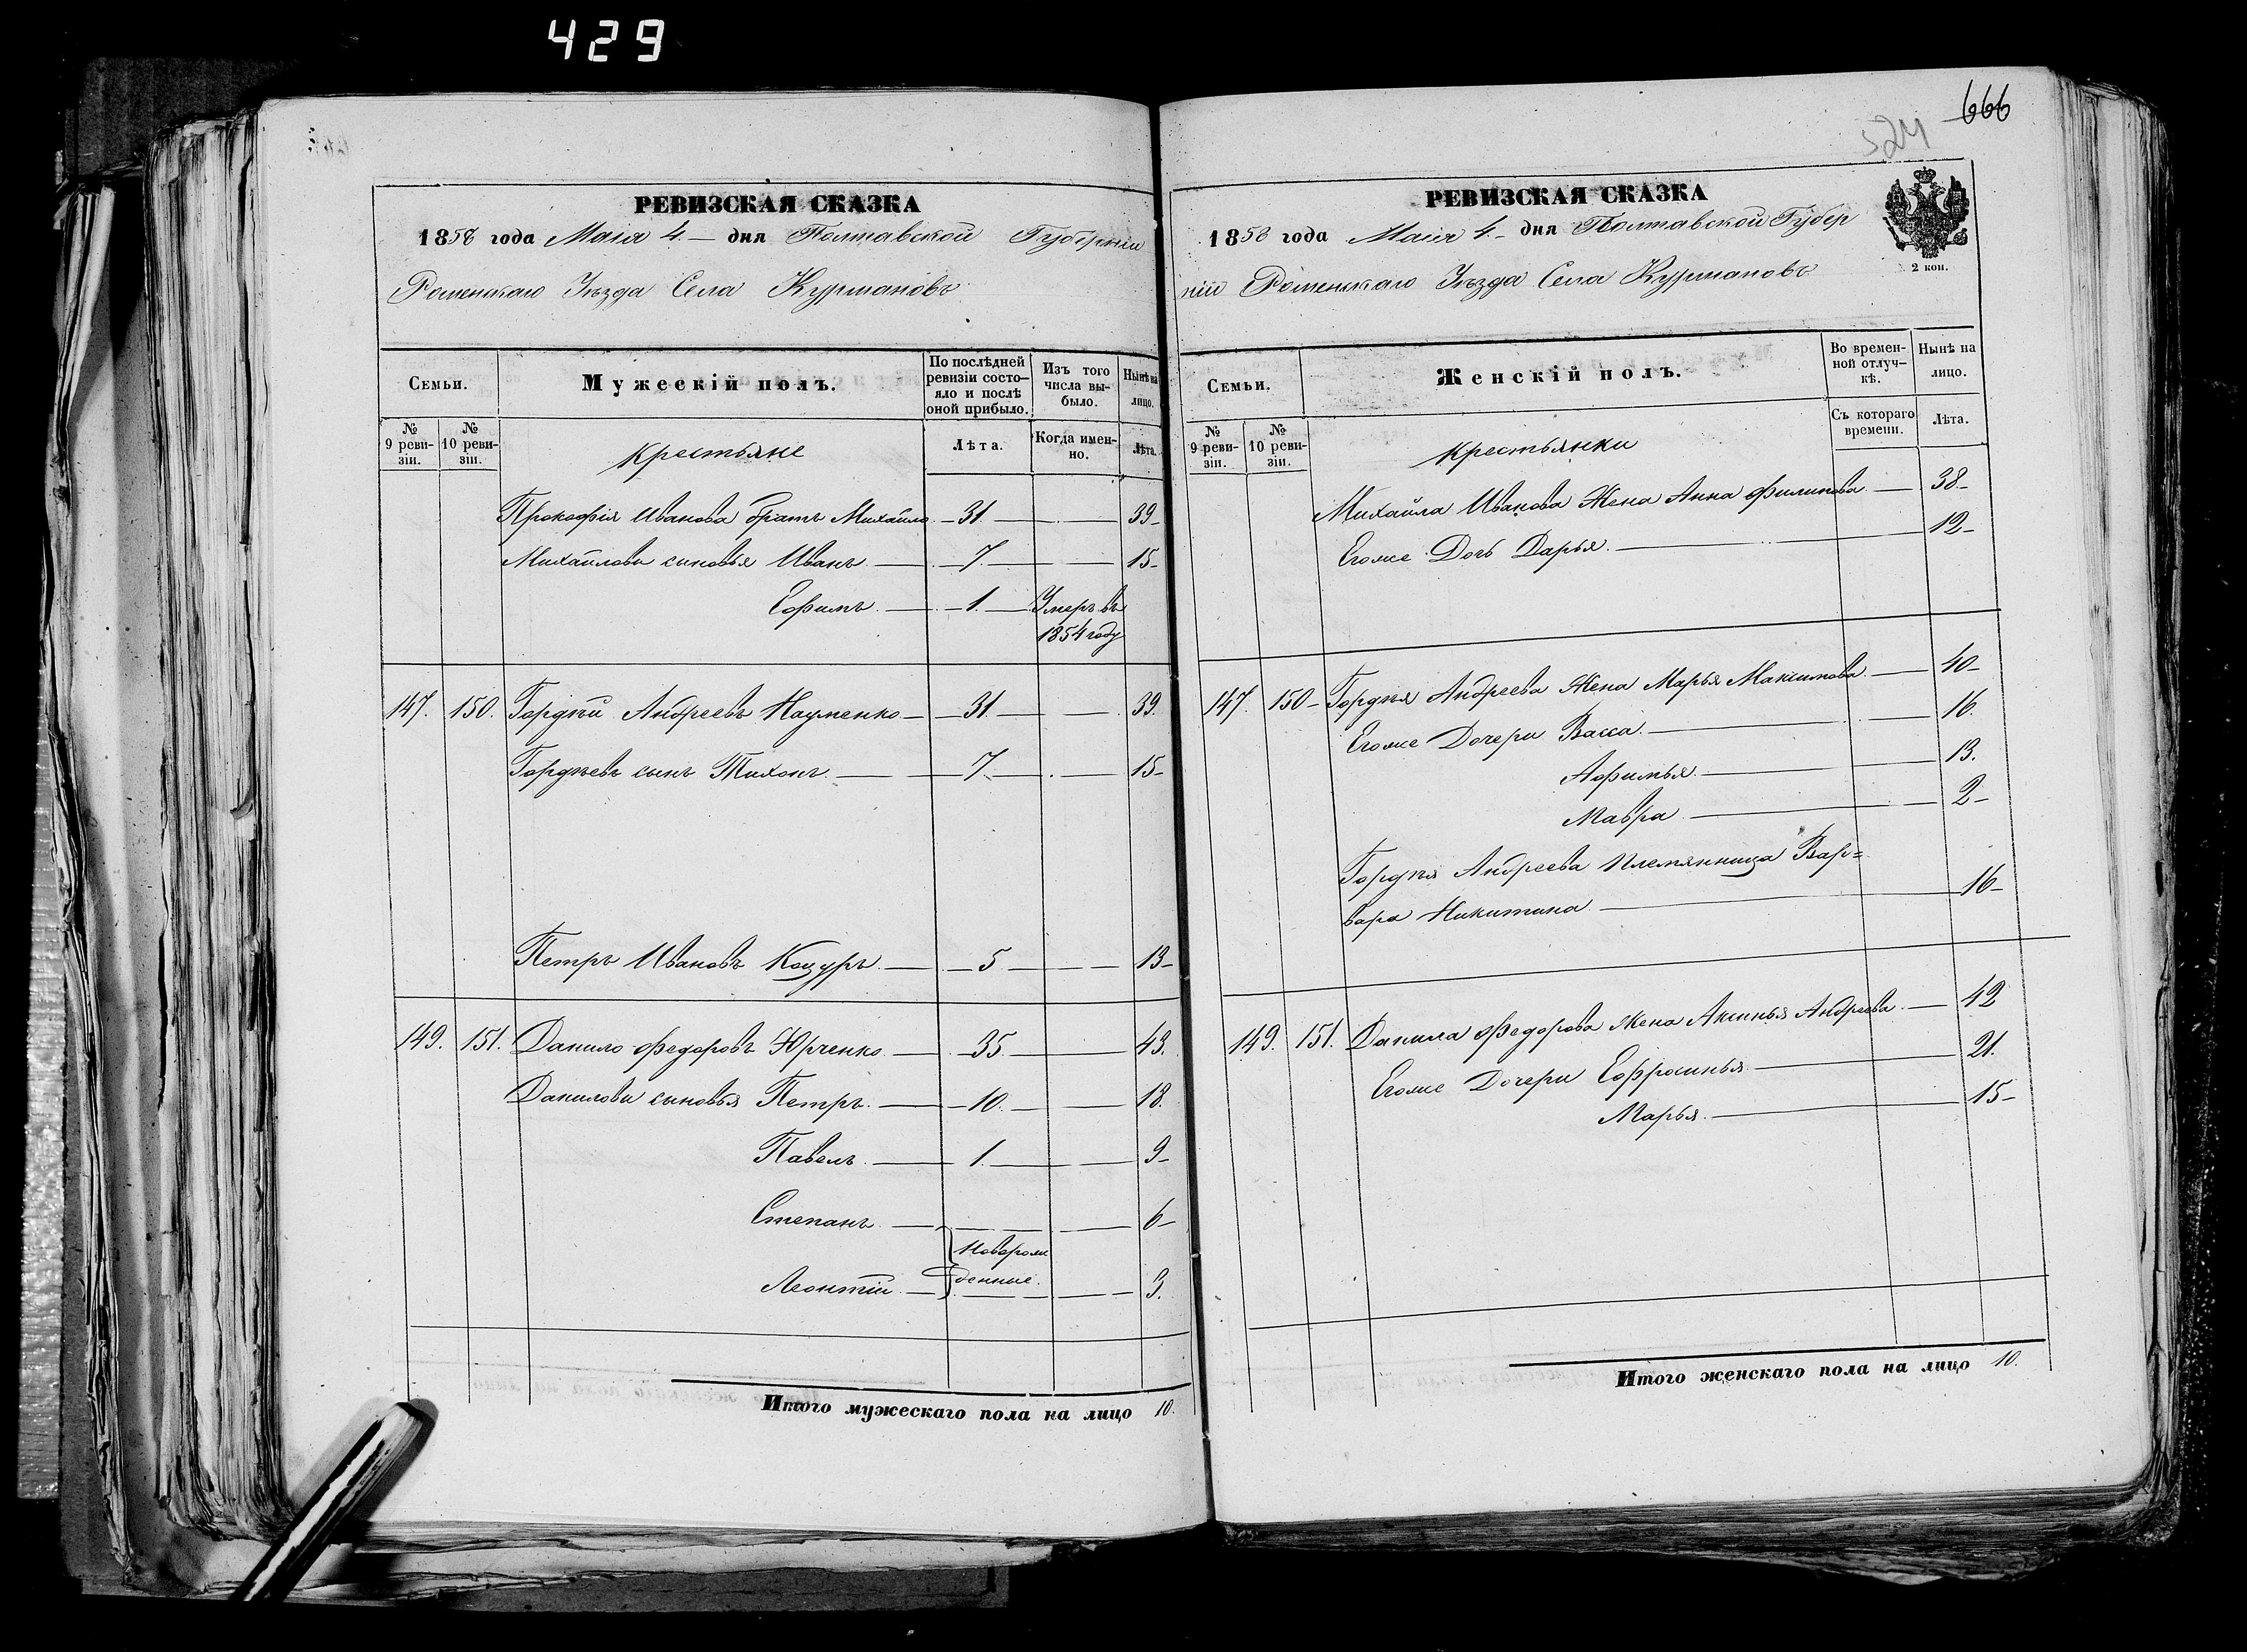 429
РЕВИЗСКАЯ СКАЗКА
1858 года Маія 4. дня Полтавской Губерніи
Роменскаго Уѣзда Села Курмановъ
Семьи.
Мужескій полъ.
По послѣдней ревизіи состо-
яло и послѣ
оной прибыло.
Изъ того
числа вы-
было.
Нынѣ на
лицо.
№
9 реви-
зіи.
№
10 реви-
зіи.
Крестьяне
Лѣта.
Когда имен-
но.
Лѣта.
Прокофія Иванова братъ Михайло 31. 39
Михайловы сыновья Иванъ 7. 15
Ефимъ 1. Умеръ въ
1854 году
147. 150. Гордѣй Андреевъ Науменко 31. 39.
Гордѣевъ сынъ Тихонъ 7. 15
Петръ Ивановъ Коцуръ 5 13
149. 151. Данило Федоровъ Юрченко 35. 43.
Даниловы сыновья Петръ 10. 18.
Павелъ 1. 9
Степанъ 6
Новорож
денные.
Леонтій 3.
Итого мужескаго пола на лицо 10.
666
524
РЕВИЗСКАЯ СКАЗКА
1858 года Маія 4. дня Полтавской Губер
ніи Роменскаго Уѣзда Села Курмановъ
2 коп.
Семьи.
Женскій полъ.
Во времен-
ной отлуч-
кѣ.
Нынѣ на
лицо.
№
9 реви-
зіи.
№
10 реви-
зіи.
Крестьянки
Съ котораго
времени.
Лѣта.
Михайла Иванова Жена Анна Филипова 38
Егоже Дочь Дарья 12
147. 150 Гордѣя Андреева Жена Марья Максимова 40
Егоже Дочери Васса 16.
Афимья 13.
Мавра 2
Гордѣя Андреева Племянница Вар=
вара Никитина 16
149. 151. Данила Федорова Жена Аксинья Андреева 42
Егоже Дочери Ефросинья 21.
Марья 15
Итого женскаго пола на лицо 10.